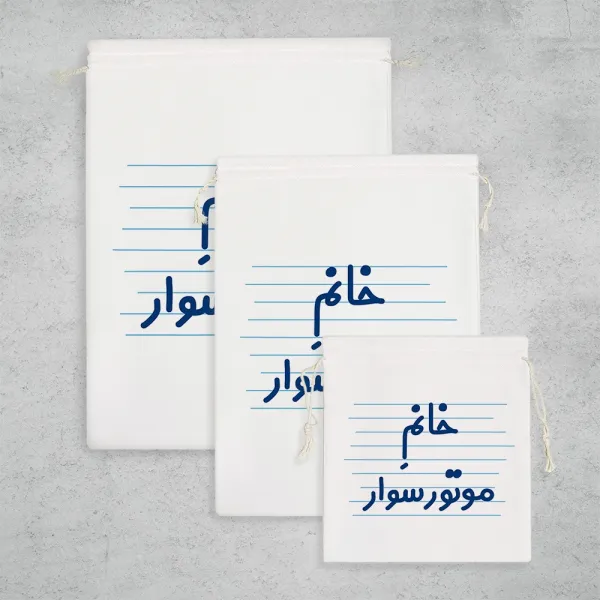 مِ
سوار
خانمِ
سوار
خانمِ
موتورسوار